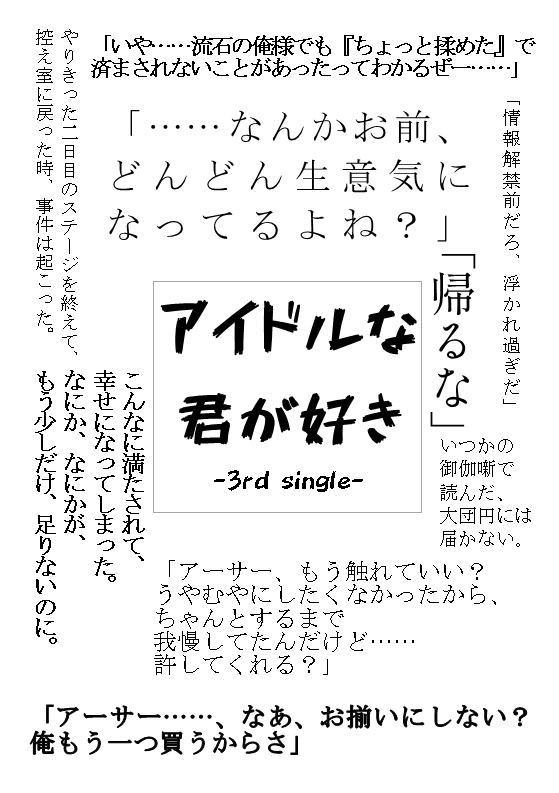 「いや……流石の俺様でも『ちょっと揉めた』で
済まされないことがあったってわかるぜー……」
「……なんかお前、
どんどん生意気に
なってるよね？」
「情報解禁前だろ、浮かれ過ぎだ」
やりきった二日目のステージを終えて、
控え室に戻った時、事件は起こった。
「帰るな」
アイドルな
君が好き
-3rd single-
こんなに満たされて、
幸せになってしまった。
なにか、なにかが、
もう少しだけ、足りないのに。
いつかの
御伽噺で
読んだ、
大団円には
届かない。
「アーサー、もう触れていい？
うやむやにしたくなかったから、
ちゃんとするまで
我慢してたんだけど……
許してくれる？」
「アーサー……、なあ、お揃いにしない？
俺もう一つ買うからさ」